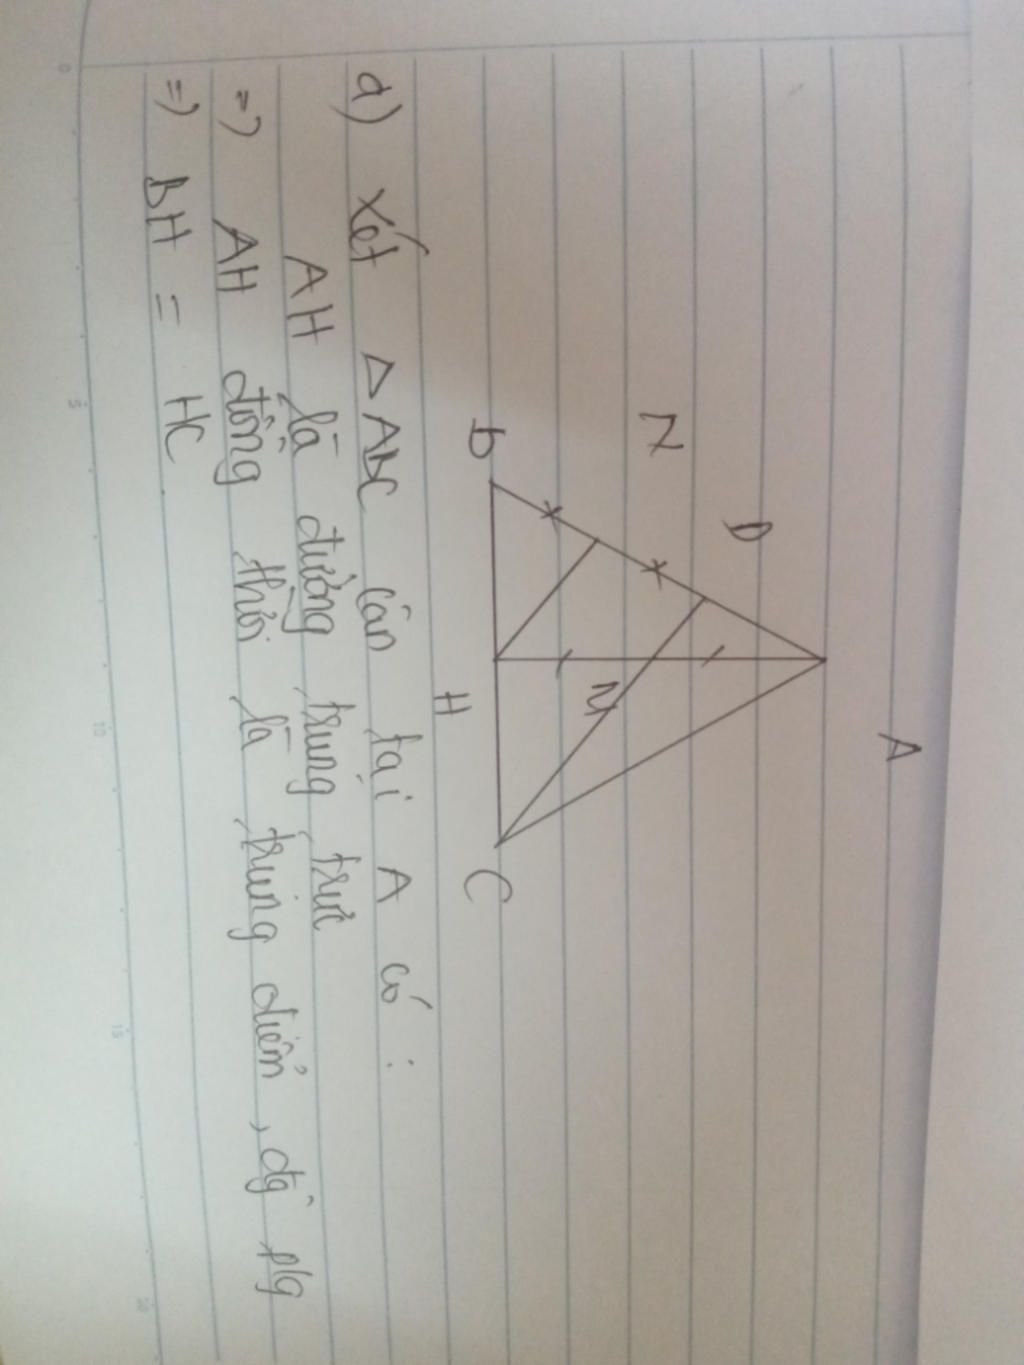 A
D
N
M
B
H
C
a) Xét Δ ABC cân tại A có :
AH là đường trung trực
=> AH đồng thời là trung điểm, đg plg
=> BH = HC
0
5
10
15
20